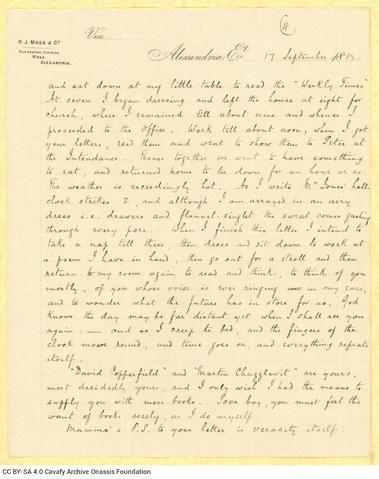 (4)
R. J. MOSS & Co.
TELEGRAPHIC ADDRESS,
MOSS,
ALEXANDRIA.
Via
Alexandria, Et. 17 September 188
and sat down at my little table to read the "Weekly Times"
At seven I began dressing and left the house at eight for
church, where I remained till about nine and whence I
proceeded to the Office. Work till about noon, when I got
your letters, read them and went to show them to Peter at
the Intendance. Thence together we went to have something
to eat, and returned home to lie down for an hour or so.
The weather is exceedingly hot. As I write Mr Jones' hall
clock strikes 2, and although I am arrayed in an airy
dress i.e. drawers and flannel-singlet the sweat comes gushing
through every pore. When I finish this letter I intend to
take a nap till three, then dress and sit down to work at
a poem I have in hand, then go out for a stroll and then
return to my room again to read and think, to think of you
mostly, of you whose voice is ever ringing in my ears,
and to wonder what the future has in store for us. God
knows the day may be far distant yet when I shall see you
again: — and so I creep to bed, and the fingers of the
clock move round, and time goes on, and everything repeats
itself.
"David Copperfield" and "Martin Chuzzlewit" are yours,
most decidedly yours, and I only wish I had the means to
supply you with more books. Poor boy, you must feel the
want of books sorely, as I do myself.
Mamma's P.S. to your letter is veracity itself.
CC BY-SA 4.0 Cavafy Archive Onassis Foundation